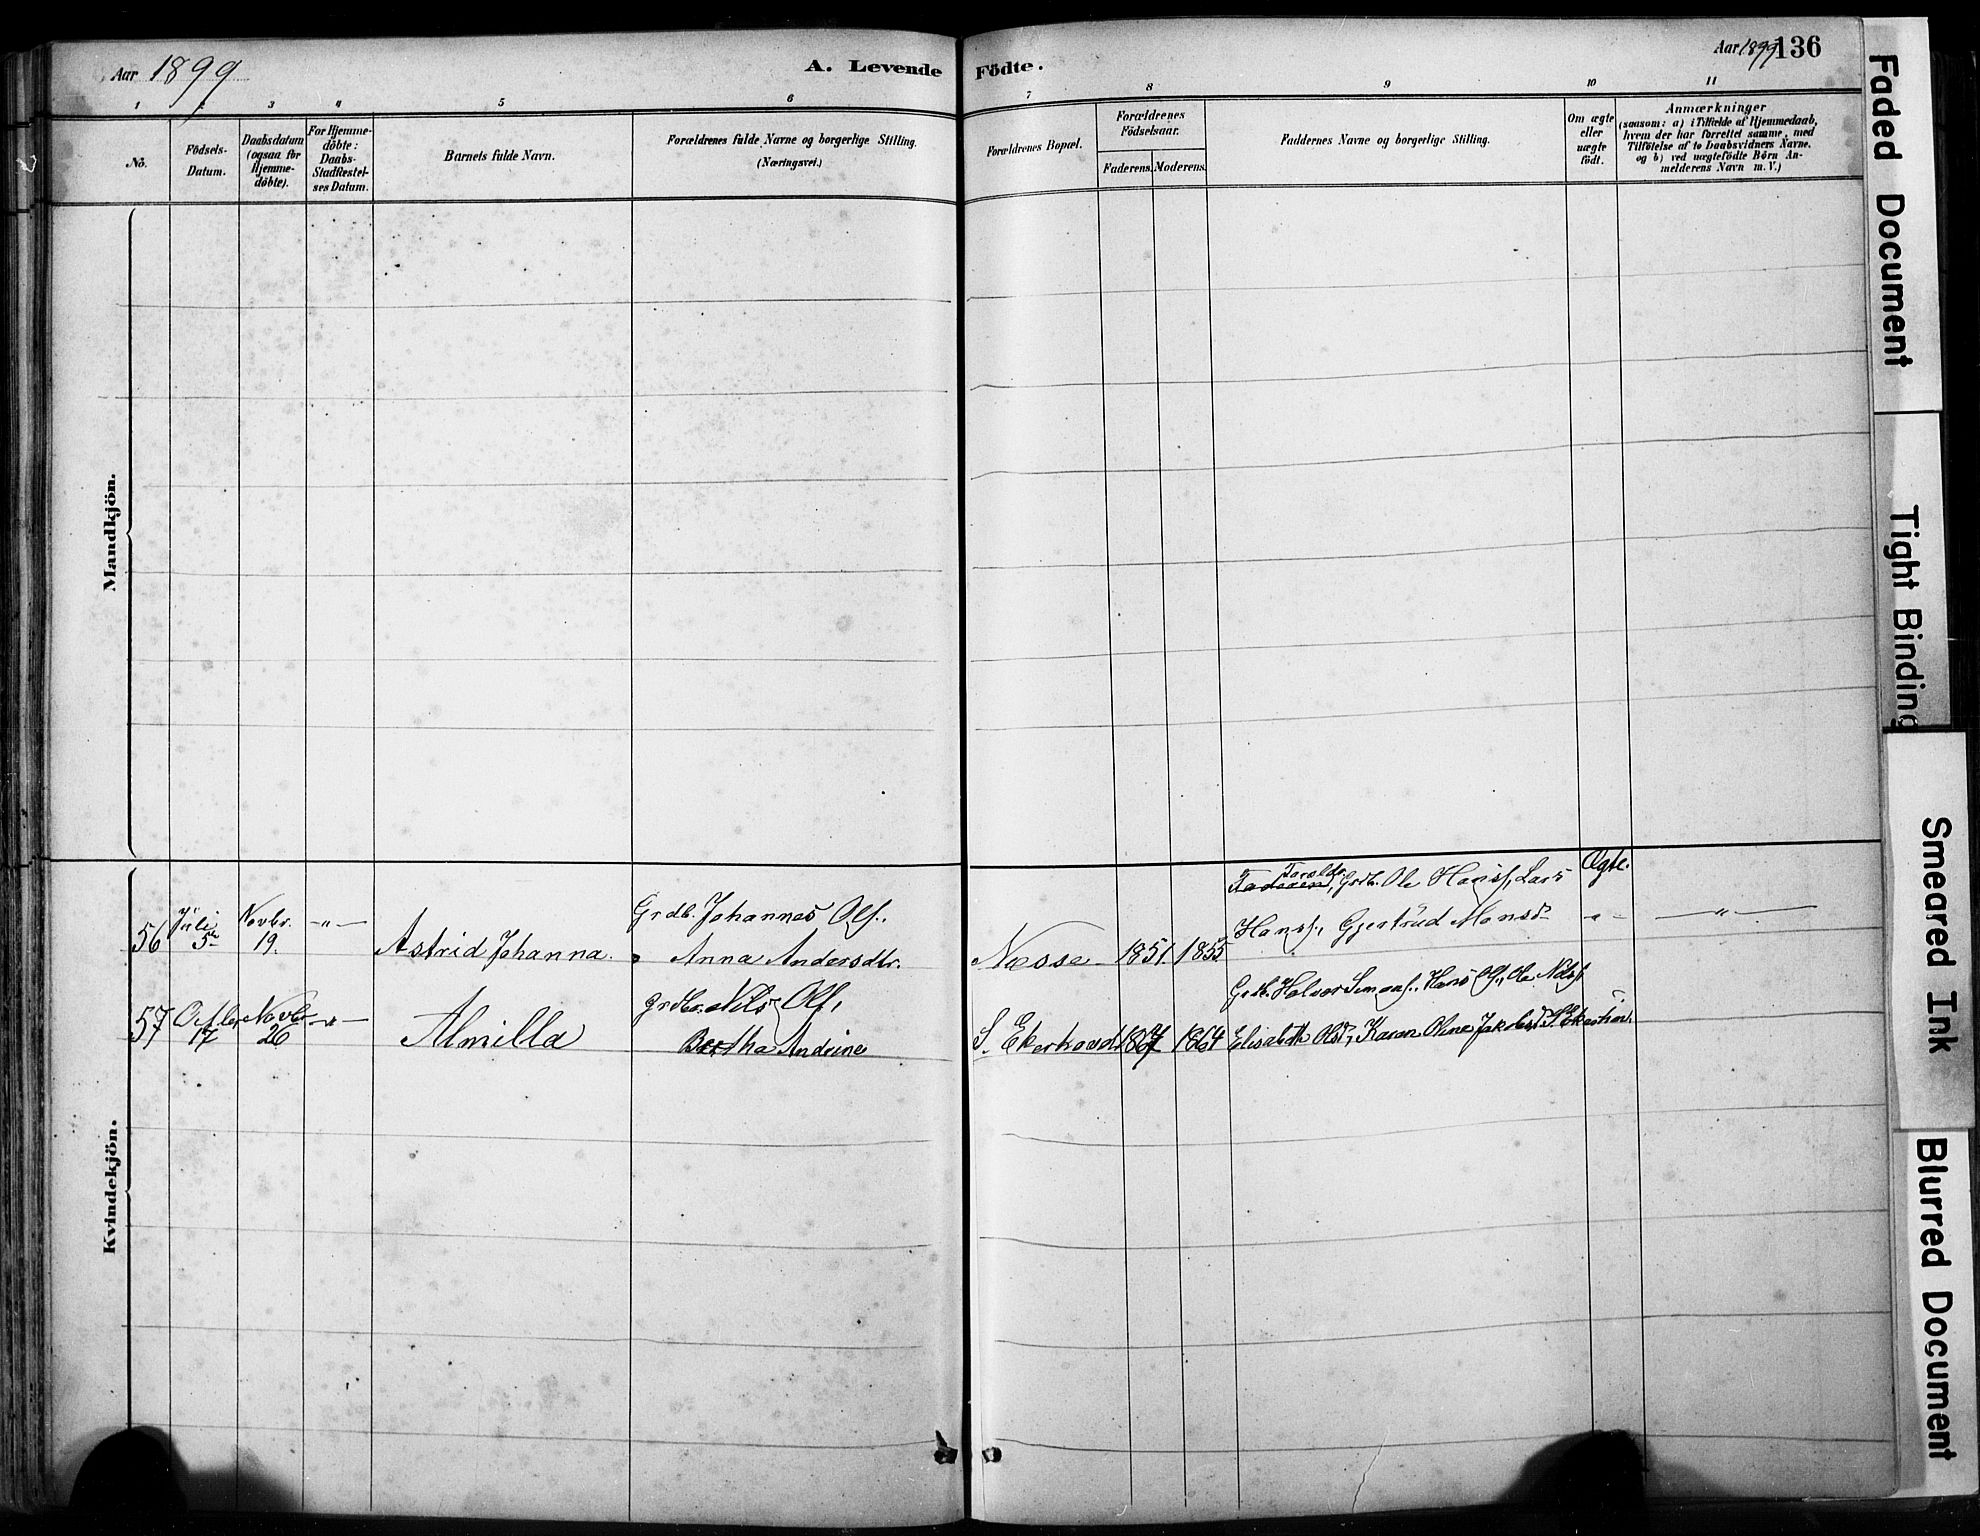 Aar 1899
A. Levende Födte.
Aar 1899
136
1 2 3 4 5 6 7 8 9 10 11
No.
Födsels-
Datum.
Daabsdatum
(ogsaa for
Hjemme-
döbte).
For Hjemme-
döbte:
Daabs-
Stadfæstel-
ses Datum.
Barnets fulde Navn.
Forældrenes fulde Navne og borgerlige Stilling.
(Næringsvei.)
Forældrenes Bopæl.
Forældrenes
Födselsaar.
Faderens. Moderens.
Faddernes Navne og borgerlige Stilling.
Om ægte
eller
uægte
födt.
Anmærkninger
(saasom: a) i Tilfælde af Hjemmedaab,
hvem der har forrettet samme, med
Tilföielse af to Daabsvidners Navne.
og b) ved uægtefödte Börn An-
melderens Navn m. V.)
Mandkjön.
Kvindekjön.
56
Juli
5
Novbr.
19.
-"-
Astrid Johanna.
Grdb. Johannes Ols.
Anna Andersdtr.
Næsse
1851.
1855
Faderen, Grdb. Ole Hanss, Lars
Hanss, Gjertrud Monsd.
Ægte.
-"-
-"-
57
Octbr
17
Novbr
26
-"-
Almilla
Grdbr. Nils Ols,
Bertha Andrine
S. Ekerhovd
1867
1864
Grdb. Halvor Simons., Hans Ols, Ole Nilss
Elisabeth Olsd, Karen Oline Jakobsd
Faded Document
Tight Binding
Smeared Ink
Blurred Document